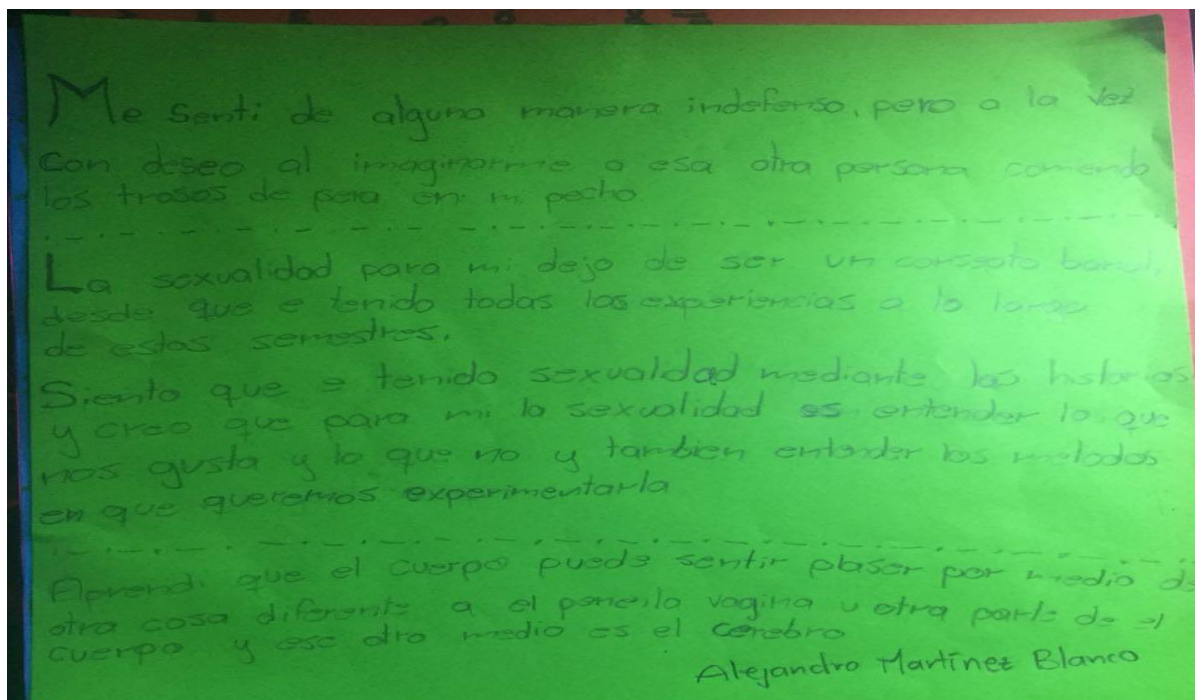 Me senti de alguna manera indefenso, pero a la vez
con deseo al imaginarme a esa otra persona comiendo
los trasos de pera en mi pecho
La sexualidad para mi dejo de ser un consepto banal,
desde que e tenido todas las experiensias a lo largo
de estos semestres.
Siento que e tenido sexualdad mediante las historias
y creo que para mi la sexualidad es entender lo que
nos gusta y lo que no y tambien entender los metodos
en que queremos experimentarla
Aprendi que el cuerpo puede sentir plaser por medio de
otra cosa diferente a el pene, la vagina u otra parte de el
cuerpo y ese otro medio es el cerebro
Alejandro Martínez Blanco